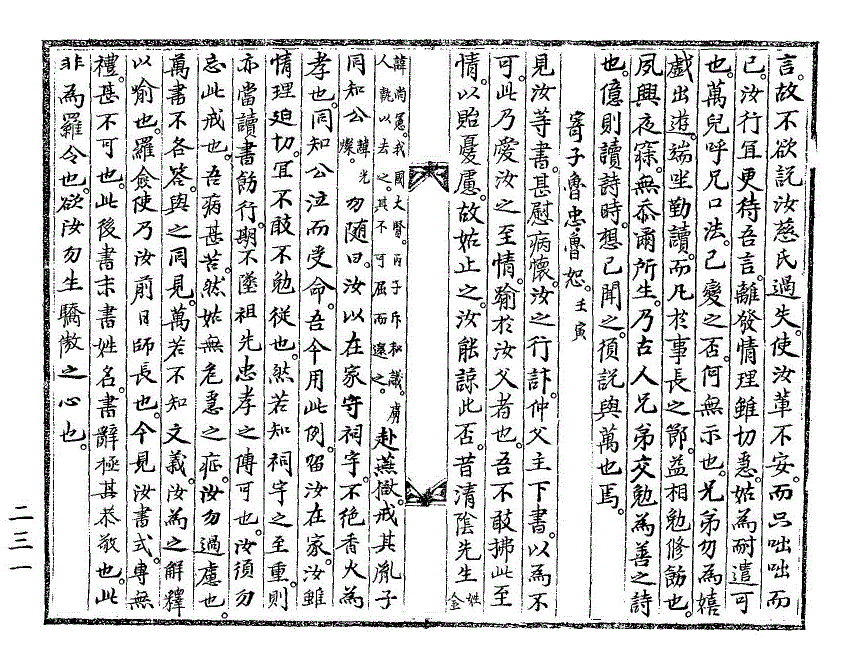 言。故不欲説汝慈氏過失。使汝軰不安。而只咄咄而
已。汝行冝更待吾言。離發情理雖切悬。姑為耐遣可
也。萬兒呼兄口法。已變之否。何無示也。兄弟勿為嬉
戯出遊。端坐勤讀。而凡於事長之節。益相勉修飭也。
夙興夜寐。無忝爾所生。乃古人兄弟交勉為善之詩
也。億則讀詩時。想已聞之。須説與萬也焉。
寄子魯忠魯恕。壬寅
見汝等書。甚慰病懷。汝之行計。仲父主下書。以為不
可。此乃愛汝之至情。踰於汝父者也。吾不敢拂此至
情。以貽憂慮。故姑止之。汝能諒此否。昔清陰先生姓金
諱尚憲。我國大賢。丙子斥和議。虜人執以去之。其不可屈而還之。赴燕獄。戒其胤子
同知公諱光燦。勿随曰。汝以在家守祠宇。不絶香火為
孝也。同知公泣而受命。吾今用此例。留汝在家。汝雖
情理廹切。冝不敢不勉從也。然若知祠宇之至重。則
亦當讀書飭行。期不墜祖先忠孝之傳可也。汝須勿
忘此戒也。吾病甚苦。然姑無危悬之症。汝勿過慮也。
萬書不各答。與之同見。萬若不知文義。汝為之解釋
以喻也。羅僉使乃汝前日師長也。今見汝書式。專無
禮。甚不可也。此後書末書姓名。書辭極其恭敬也。此
非為羅令也。欲汝勿生驕傲之心也。
二三一